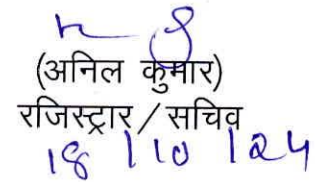 (अनिल कुमार)
रजिस्ट्रार / सचिव
18/10/24